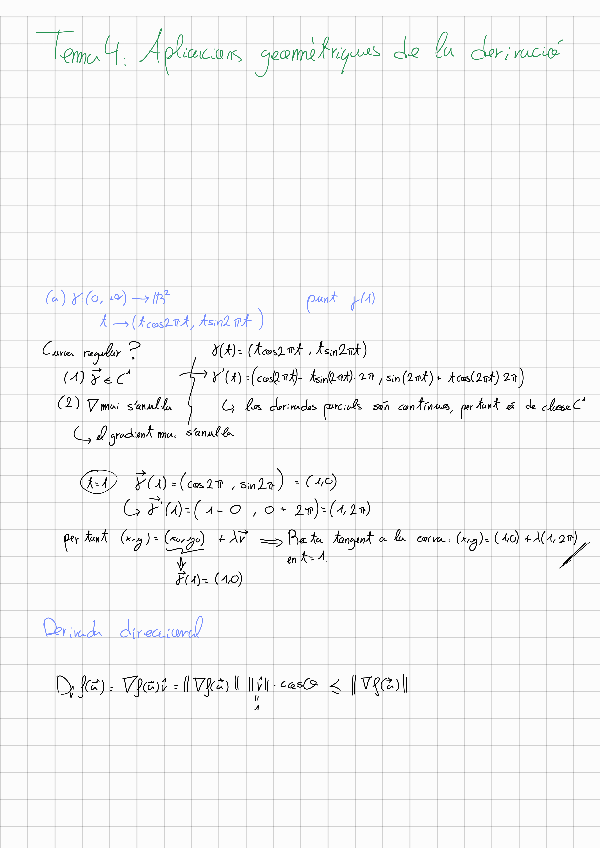 Tema 4: Aplicacions geomètriques de la derivació
(a) γ(0, +∞) → ℝ² punt γ(1)
t → (t cos2πt, t sin2πt)
Curva regular? γ(t) = (t cos2πt, t sin2πt)
(1) γ⃗ ∈ C¹ → γ'(t) = (cos(2πt) - t sin(2πt)·2π, sin(2πt) + t cos(2πt) 2π)
(2) ∇ mai s'anul·la ↳ les derivades parcials són contínues, per tant és de classe C¹
↳ el gradient mai s'anul·la
t=1 γ⃗(1) = (cos2π, sin2π) = (1,0)
↳ γ⃗'(1) = (1 - 0, 0 + 2π) = (1, 2π)
per tant (x,y) = (x₀,y₀) + λv⃗ ⟹ Recta tangent a la corva: (x,y) = (1,0) + λ(1,2π)
en t=1.
γ⃗(1) = (1,0)
Derivada direccional
Dᵥf(a⃗) = ∇f(a⃗)v̂ = ||∇f(a⃗)|| ||v̂||·cosθ ≤ ||∇f(a⃗)||
=
1